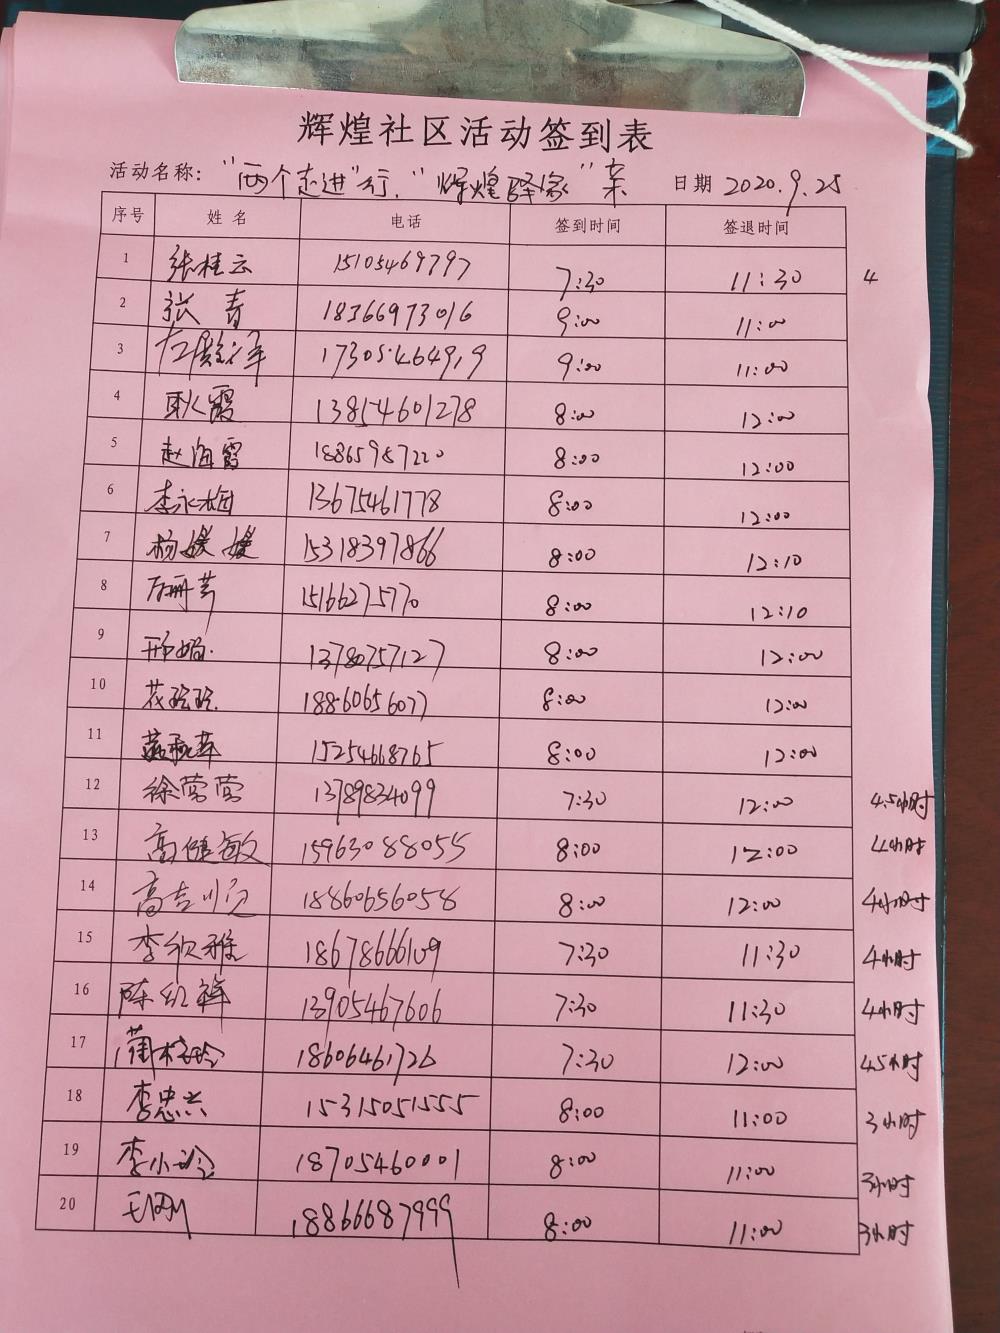 辉煌社区活动签到表
活动名称: "两个走进"行."辉煌驿家"亲 日期 2020.9.25
序号 姓名 电话 签到时间 签退时间
1 张桂云 15105469797 7:30 11:30 4
2 张青 18366973016 9:00 11:00
3 17305464919 9:00 11:00
4 耿霞 13854601278 8:00 12:00
5 赵海霞 18865987220 8:00 12:00
6 李永梅 13675461778 8:00 12:00
7 杨媛媛 15318397866 8:00 12:10
8 15166275770 8:00 12:10
9 邢娟 13780757127 8:00 12:00
10 花玲玲 18860656077 8:00 12:00
11 15254668765 8:00 12:00
12 徐莺莺 13789834099 7:30 12:00 4.5小时
13 高健敏 15963088055 8:00 12:00 4小时
14 高吉顺 18860656058 8:00 12:00 4小时
15 李欣雅 18678666109 7:30 11:30 4小时
16 陈红祥 13905467606 7:30 11:30 4小时
17 18606461726 7:30 12:00 4.5小时
18 李忠兴 15315051555 8:00 11:00 3小时
19 李小玲 18705460001 8:00 11:00 3小时
20 毛刚 18866687999 8:00 11:00 3小时